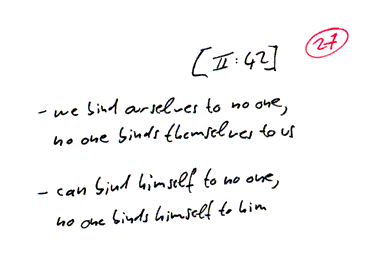 27
[II:42]
- we bind ourselves to no one,
no one binds themselves to us
- can bind himself to no one,
no one binds himself to him